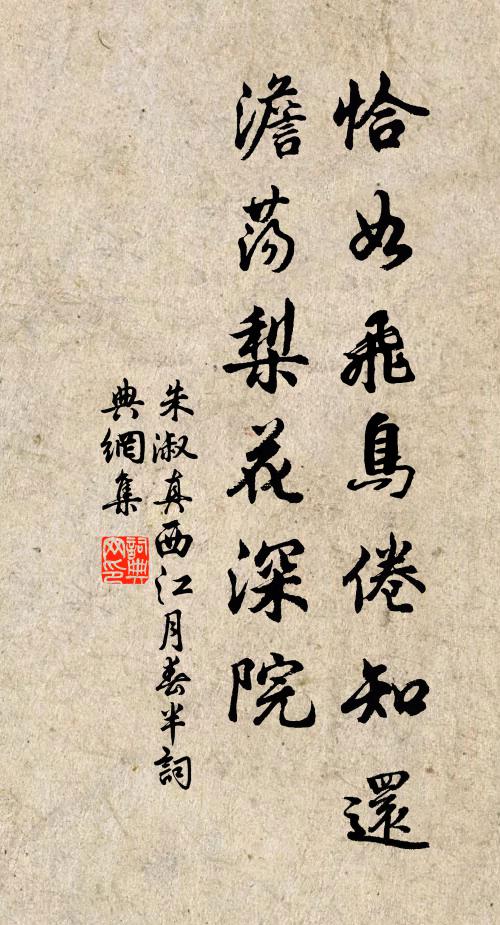 恰如飛鳥倦知還
澹蕩梨花深院
朱淑真西江月春半詞
典網集
詞典網印